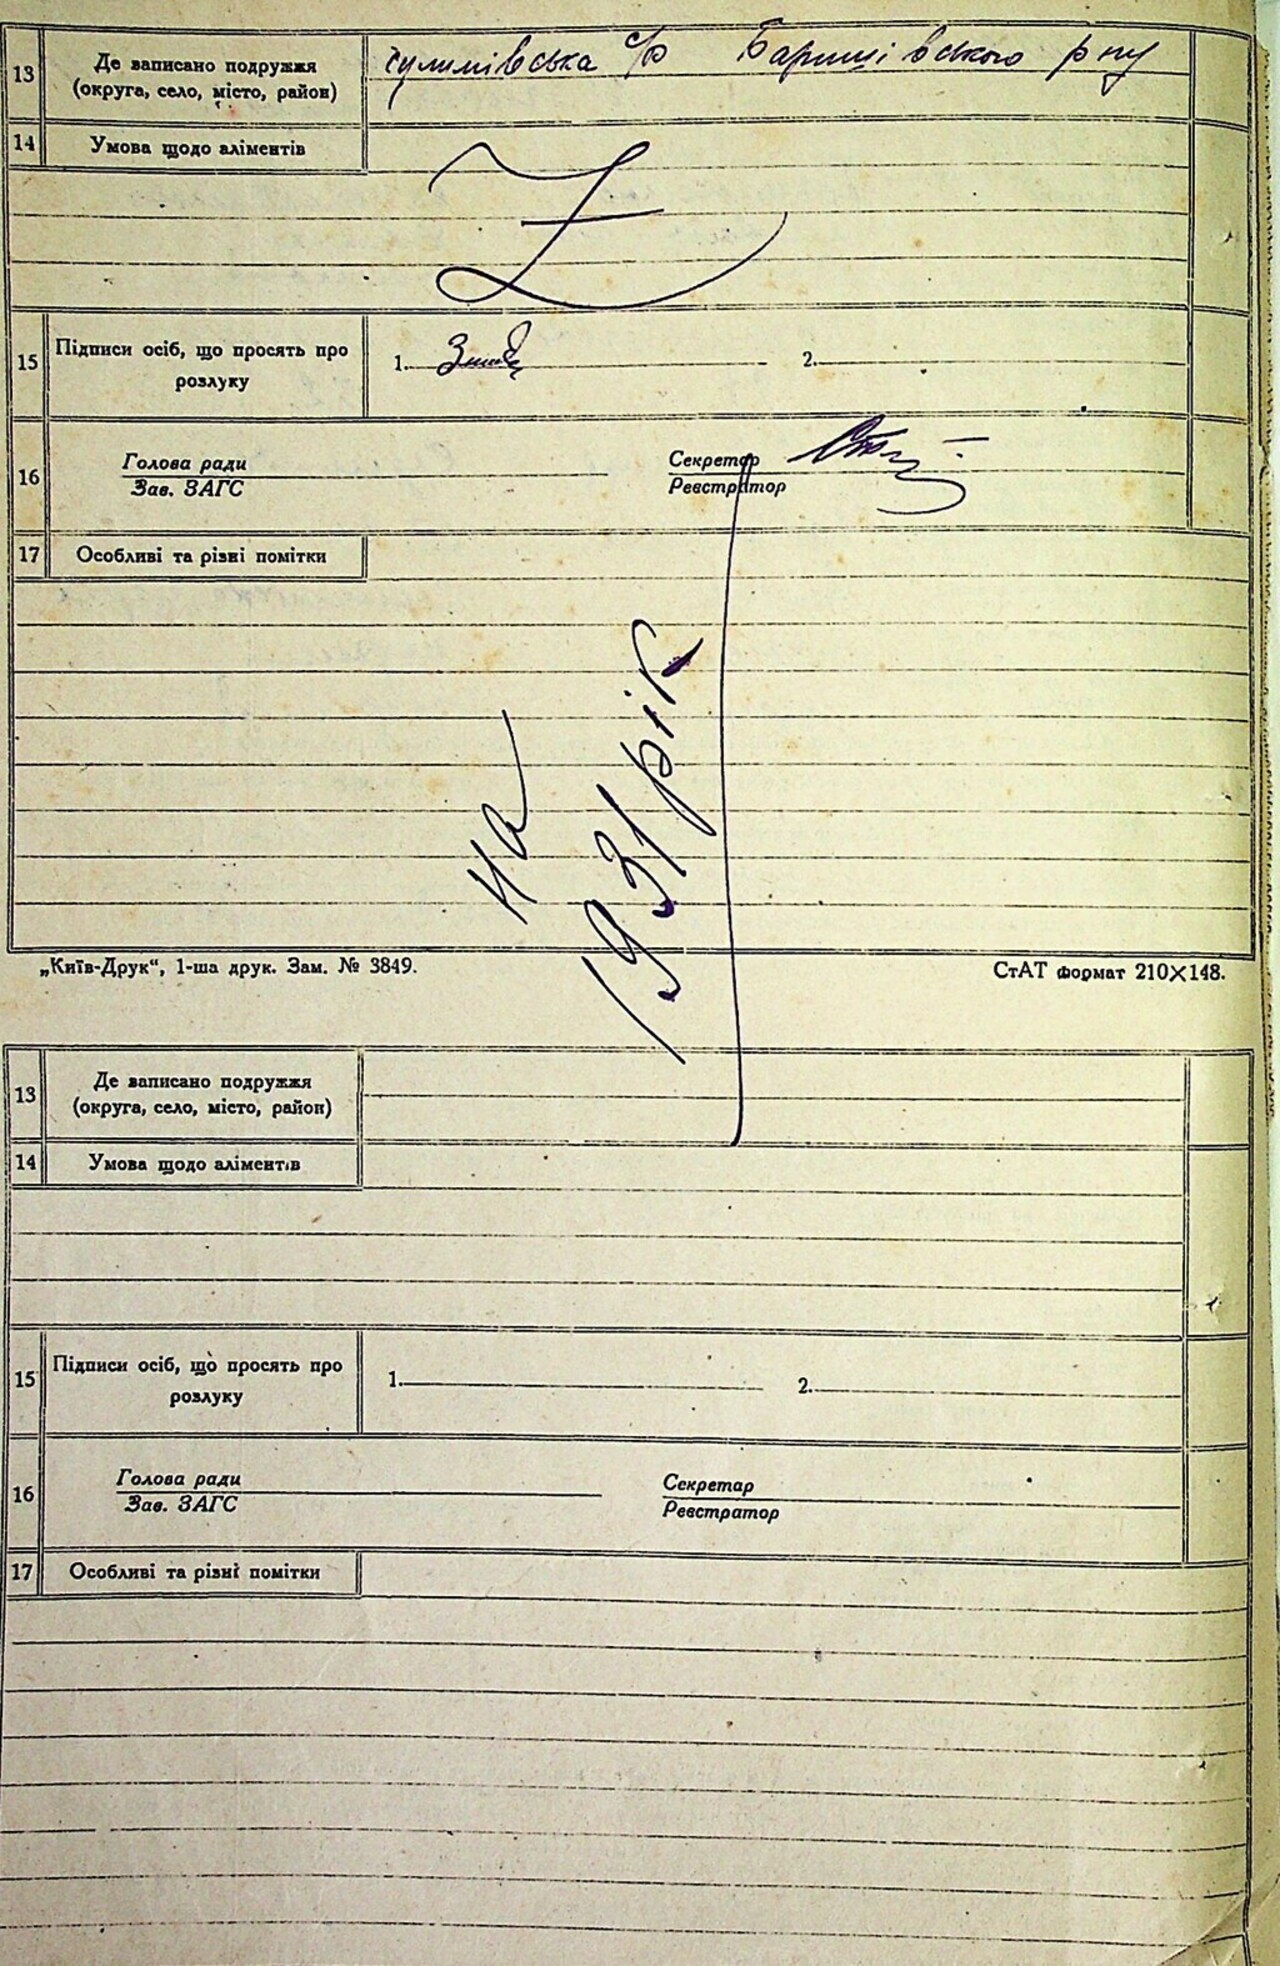 13
Де записано подружжя
(округа, село, місто, район)
Сулимівська с/р Баришівського р ну
14
Умова щодо аліментів
Z
15
Підписи осіб, що просять про
розлуку
1.
2.
16
Голова ради
Зав. ЗАГС
Секретар
Реєстратор
17
Особливі та різні помітки
на
1931 рік
„Київ-Друк“, 1-ша друк. Зам. № 3849.
СтАТ формат 210×148.
13
Де записано подружжя
(округа, село, місто, район)
14
Умова щодо аліментів
15
Підписи осіб, що просять про
розлуку
1.
2.
16
Голова ради
Зав. ЗАГС
Секретар
Реєстратор
17
Особливі та різні помітки